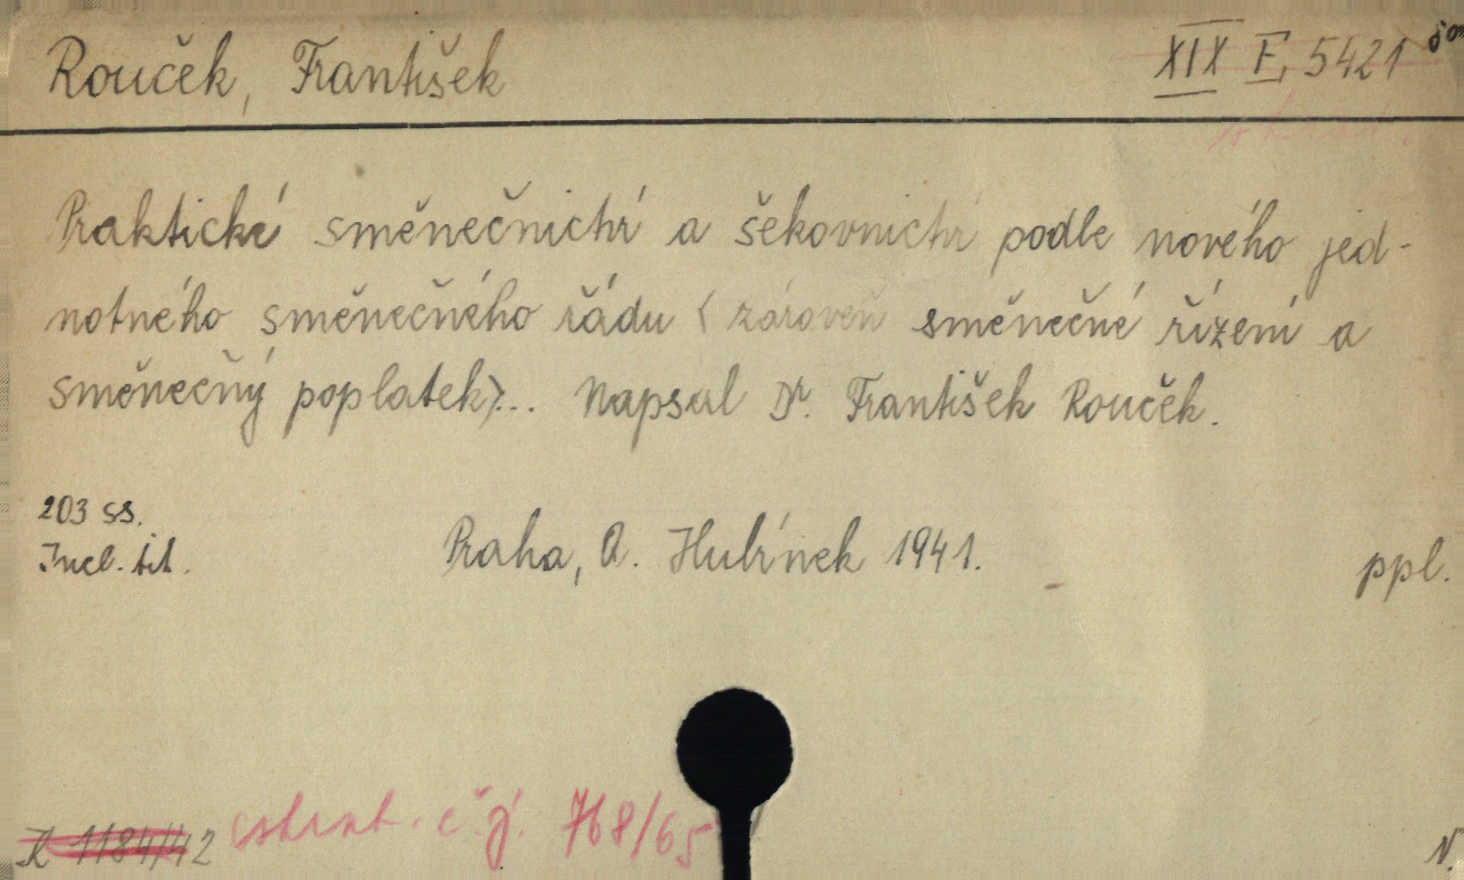 Rouček, František XIX F, 5421
Praktické směnečnictví a šekovnictví podle nového jed-
notného směnečného řádu (zároveň směnečné řízení a
směnečný poplatek)... Napsal Dr. František Rouček.
203 ss.
Praha, A. Hubínek 1941.
Incl. tit. ppl.
R 1184/42 č.j. 768/65
N.